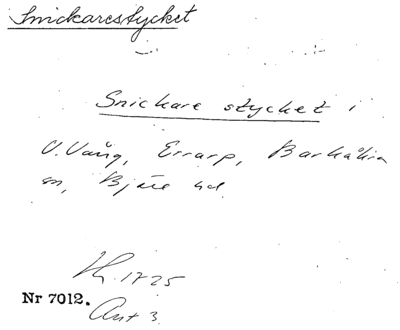 Snickarestycket
Snickare stycket i
V. Vång, Errarp, Barkåkra
sn, Bjäre hd.
Lh. 1725
Nr 7012.
Akt 3.